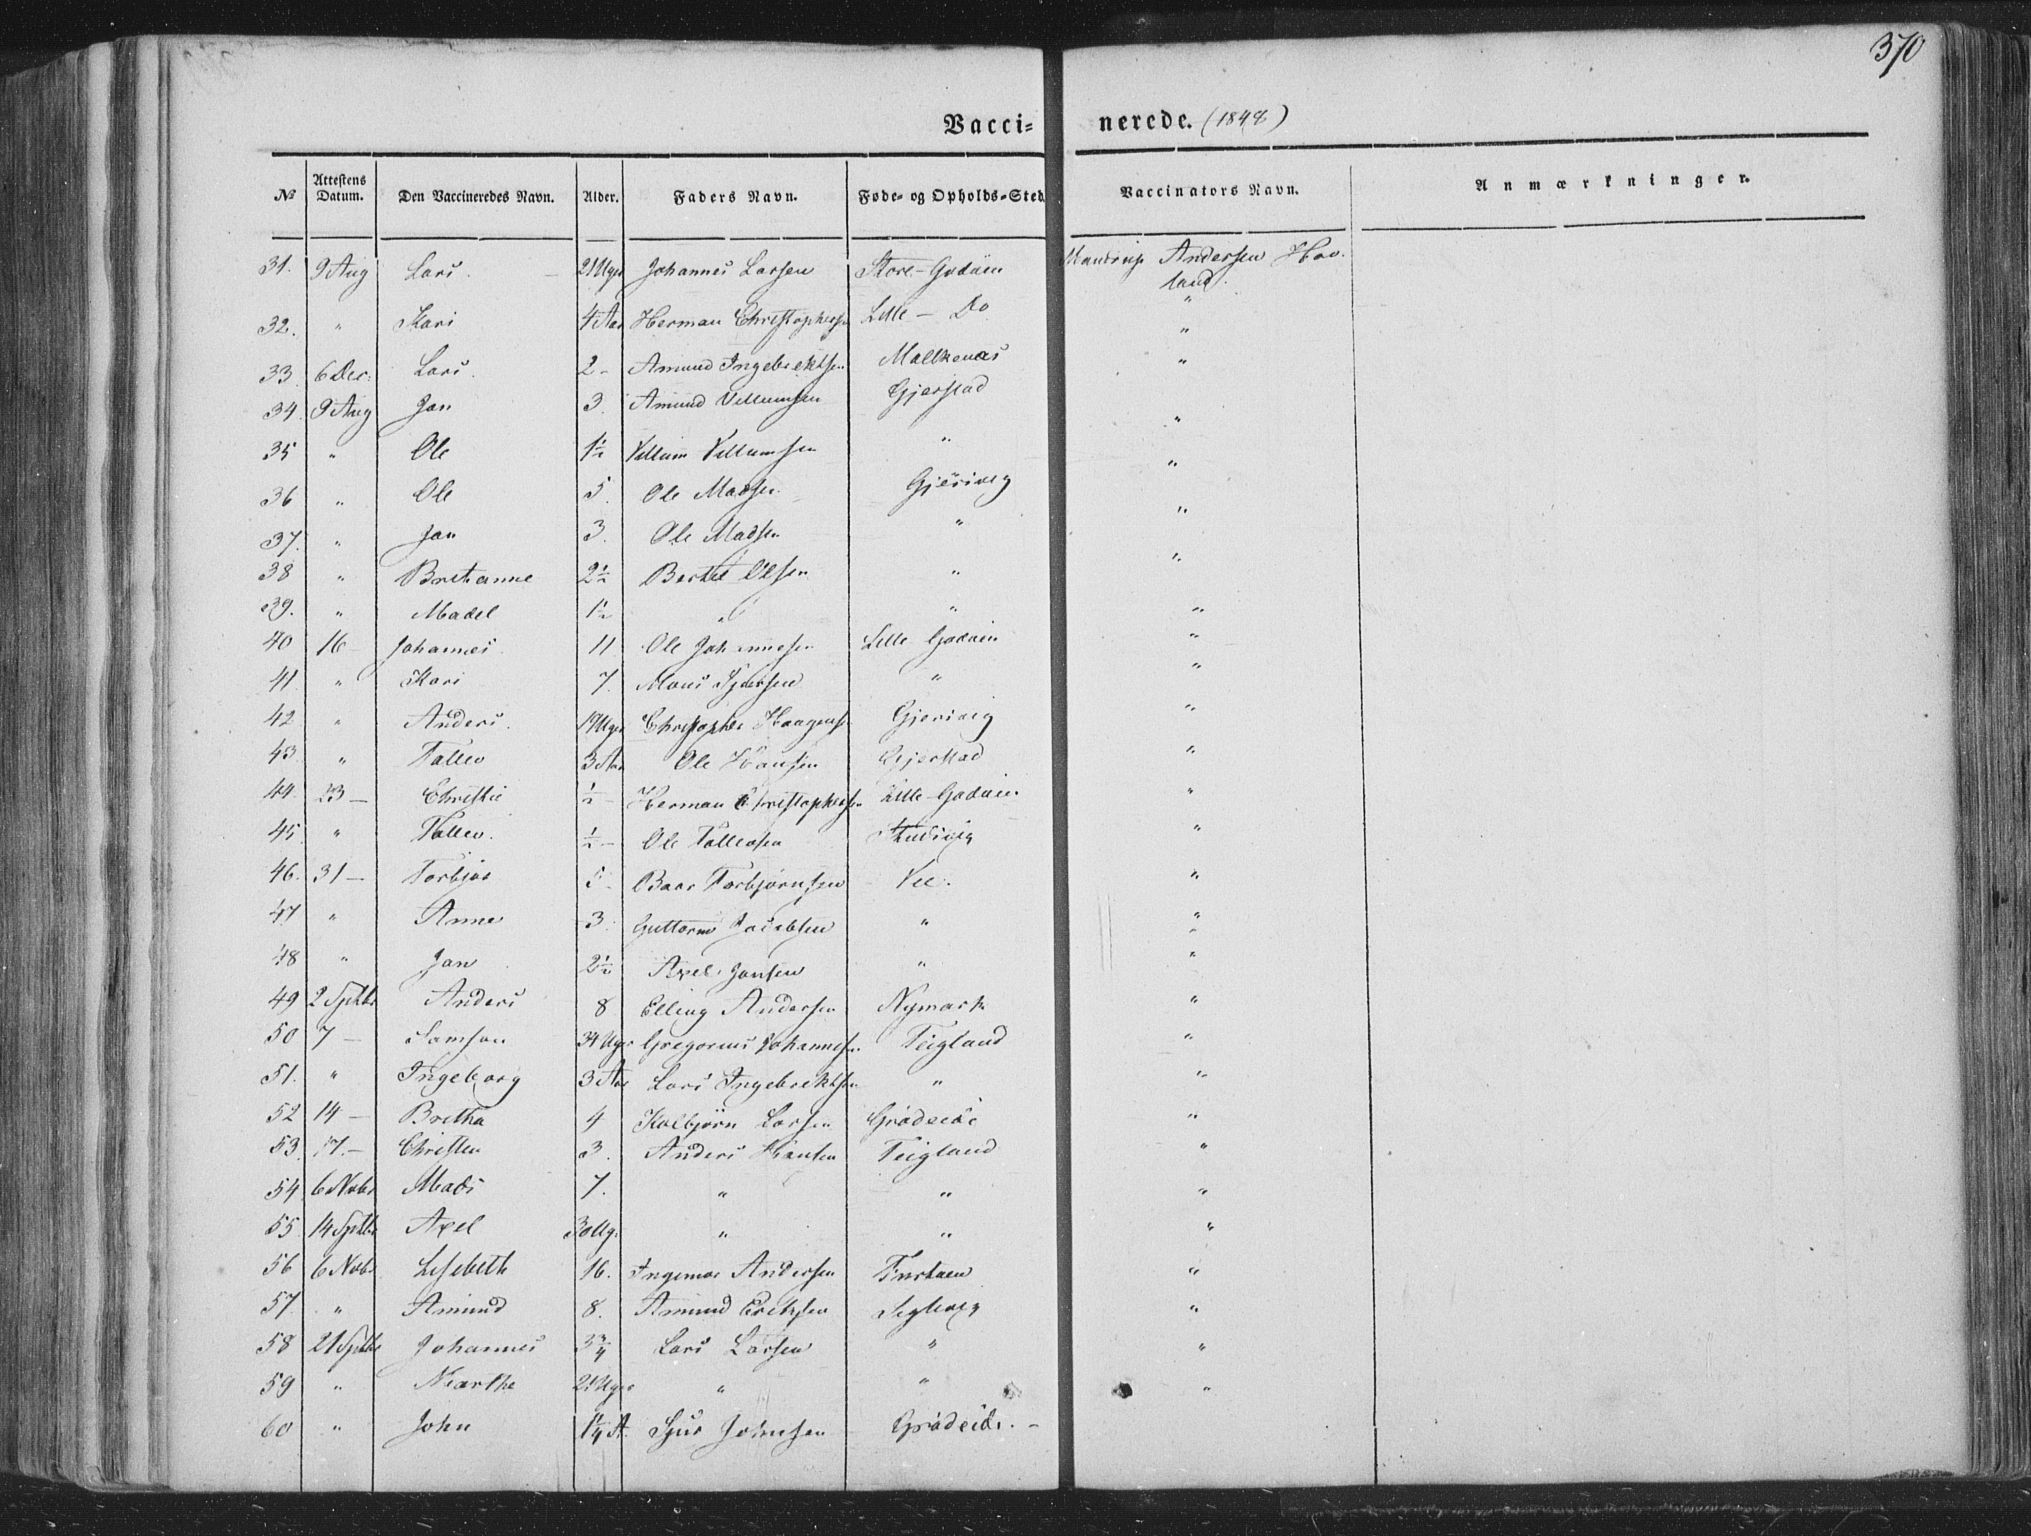 370
Vaccinerede. (1848)
No Attestens Datum. Den Vaccineredes Navn. Alder. Faders Navn. Føde- og Opholds-Sted Vaccinators Navn. Anmærkninger.
31. 9 Aug Lars. 21 Uger Johannes Larsen Store-Godøen Mandrup Andersen Hovland.
32. " Kari 4 Aar Herman Christophersen Lille - Do "
33 6 Dec: Lars. 2 - Amund Ingebrektsen Malkenæs "
34. 9 Aug Jan 3. Amund Villumsen Gjerstad "
35 " Ole 1½ Villum Villumsen " "
36 " Ole 5. Ole Madsen Gjerivig "
37. " Jan 3. Ole Madsen " "
38 " Brithanne 2½ Berthel Olsen " "
39. " Madel 1½ " " "
40 16 - Johannes. 11 Ole Johannesen Lille Godøen "
41 " Kari 7. Mons Sjursen " "
42 " Anders. 19 Uger Christopher Haagens. Gjerivig "
43 " Tollev 3 Aar Ole Hansen Gjerstad "
44 23 - Christie ½ - Herman Christophersen Lille-Godøen "
45 " Tollev. ½ - Ole Tollevsen "
46. 31 - Torbjør 5 - Baar Torbjørnsen Vee. "
47 " Anne 3. Guttorm Jacobsen " "
48 " Jan 2½ Axel Jansen " "
49 2 Sptbr Anders 8 Elling Andersen Nymark "
50 7 - Samson 34 Uger Gregorius Johannesen Teigland "
51. " Ingeborg 3 Aar Lars Ingebrektsen " "
52 14 - Bretha 4 Kolbjørn Larsen Grødeide "
53. 17. - Christen 3. Anders Hansen Teigland "
54 6 Novbr Mads 7. " " "
55 14 Sptbr Axel 30 Ug. " " "
56 6 Novbr Lisebeth 16. Ingemar Andersen "
57 " Amund 8. Amund Erichsen "
58 21 Sptbr Johannes 3¾ Lars Larsen " "
59 " Marthe 21 Uger " " "
60 " John 1¼ A. Sjur Johnsen Grødeide. -